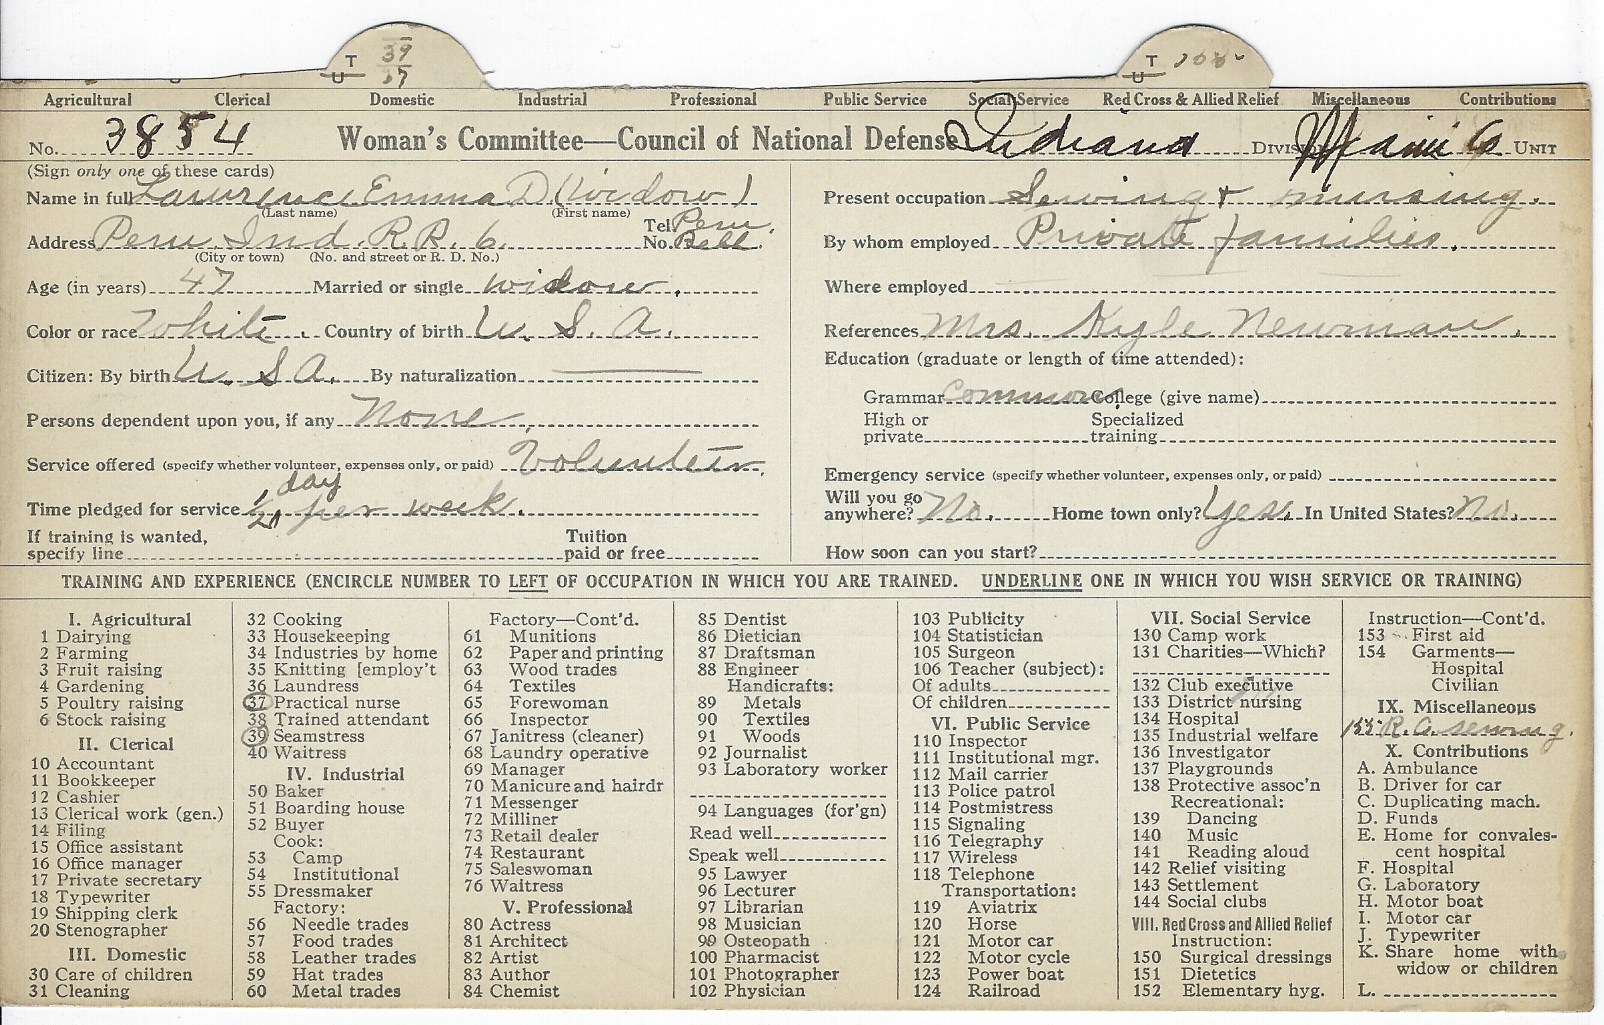 T 39
U 37
T
U
Agricultural Clerical Domestic Industrial Professional Public Service Social Service Red Cross & Allied Relief Miscellaneous Contributions
No. 3854 Woman's Committee—Council of National Defense Indiana Division Miami Co Unit
(Sign only one of these cards)
Name in full Lawrence Emma D (Widow)
(Last name) (First name)
Address Peru Ind. R.R. 6. Tel. No. Peru Bell.
(City or town) (No. and street or R. D. No.)
Age (in years) 47 Married or single widow.
Color or race White. Country of birth U. S. A.
Citizen: By birth U. S A. By naturalization
Persons dependent upon you, if any None.
Service offered (specify whether volunteer, expenses only, or paid) Volunteer.
day
Time pledged for service 1/2 per week.
If training is wanted,
specify line Tuition paid or free
Present occupation Sewing & nursing.
By whom employed Private families.
Where employed
References Mrs. Kyle Newman.
Education (graduate or length of time attended):
Grammar Common College (give name)
High or private Specialized training
Emergency service (specify whether volunteer, expenses only, or paid)
Will you go anywhere? No. Home town only? Yes. In United States? No.
How soon can you start?
TRAINING AND EXPERIENCE (ENCIRCLE NUMBER TO LEFT OF OCCUPATION IN WHICH YOU ARE TRAINED. UNDERLINE ONE IN WHICH YOU WISH SERVICE OR TRAINING)
I. Agricultural
1 Dairying
2 Farming
3 Fruit raising
4 Gardening
5 Poultry raising
6 Stock raising
II. Clerical
10 Accountant
11 Bookkeeper
12 Cashier
13 Clerical work (gen.)
14 Filing
15 Office assistant
16 Office manager
17 Private secretary
18 Typewriter
19 Shipping clerk
20 Stenographer
III. Domestic
30 Care of children
31 Cleaning
32 Cooking
33 Housekeeping
34 Industries by home
35 Knitting [employ't
36 Laundress
37 Practical nurse
38 Trained attendant
39 Seamstress
40 Waitress
IV. Industrial
50 Baker
51 Boarding house
52 Buyer
Cook:
53 Camp
54 Institutional
55 Dressmaker
Factory:
56 Needle trades
57 Food trades
58 Leather trades
59 Hat trades
60 Metal trades
Factory—Cont'd.
61 Munitions
62 Paper and printing
63 Wood trades
64 Textiles
65 Forewoman
66 Inspector
67 Janitress (cleaner)
68 Laundry operative
69 Manager
70 Manicure and hairdr
71 Messenger
72 Milliner
73 Retail dealer
74 Restaurant
75 Saleswoman
76 Waitress
V. Professional
80 Actress
81 Architect
82 Artist
83 Author
84 Chemist
85 Dentist
86 Dietician
87 Draftsman
88 Engineer
Handicrafts:
89 Metals
90 Textiles
91 Woods
92 Journalist
93 Laboratory worker
94 Languages (for'gn)
Read well
Speak well
95 Lawyer
96 Lecturer
97 Librarian
98 Musician
99 Osteopath
100 Pharmacist
101 Photographer
102 Physician
103 Publicity
104 Statistician
105 Surgeon
106 Teacher (subject):
Of adults
Of children
VI. Public Service
110 Inspector
111 Institutional mgr.
112 Mail carrier
113 Police patrol
114 Postmistress
115 Signaling
116 Telegraphy
117 Wireless
118 Telephone
Transportation:
119 Aviatrix
120 Horse
121 Motor car
122 Motor cycle
123 Power boat
124 Railroad
VII. Social Service
130 Camp work
131 Charities—Which?
132 Club executive
133 District nursing
134 Hospital
135 Industrial welfare
136 Investigator
137 Playgrounds
138 Protective assoc'n
Recreational:
139 Dancing
140 Music
141 Reading aloud
142 Relief visiting
143 Settlement
144 Social clubs
VIII. Red Cross and Allied Relief
Instruction:
150 Surgical dressings
151 Dietetics
152 Elementary hyg.
Instruction—Cont'd.
153 First aid
154 Garments—
Hospital
Civilian
IX. Miscellaneous
155 R. C. sewing.
X. Contributions
A. Ambulance
B. Driver for car
C. Duplicating mach.
D. Funds
E. Home for convales-
cent hospital
F. Hospital
G. Laboratory
H. Motor boat
I. Motor car
J. Typewriter
K. Share home with
widow or children
L.